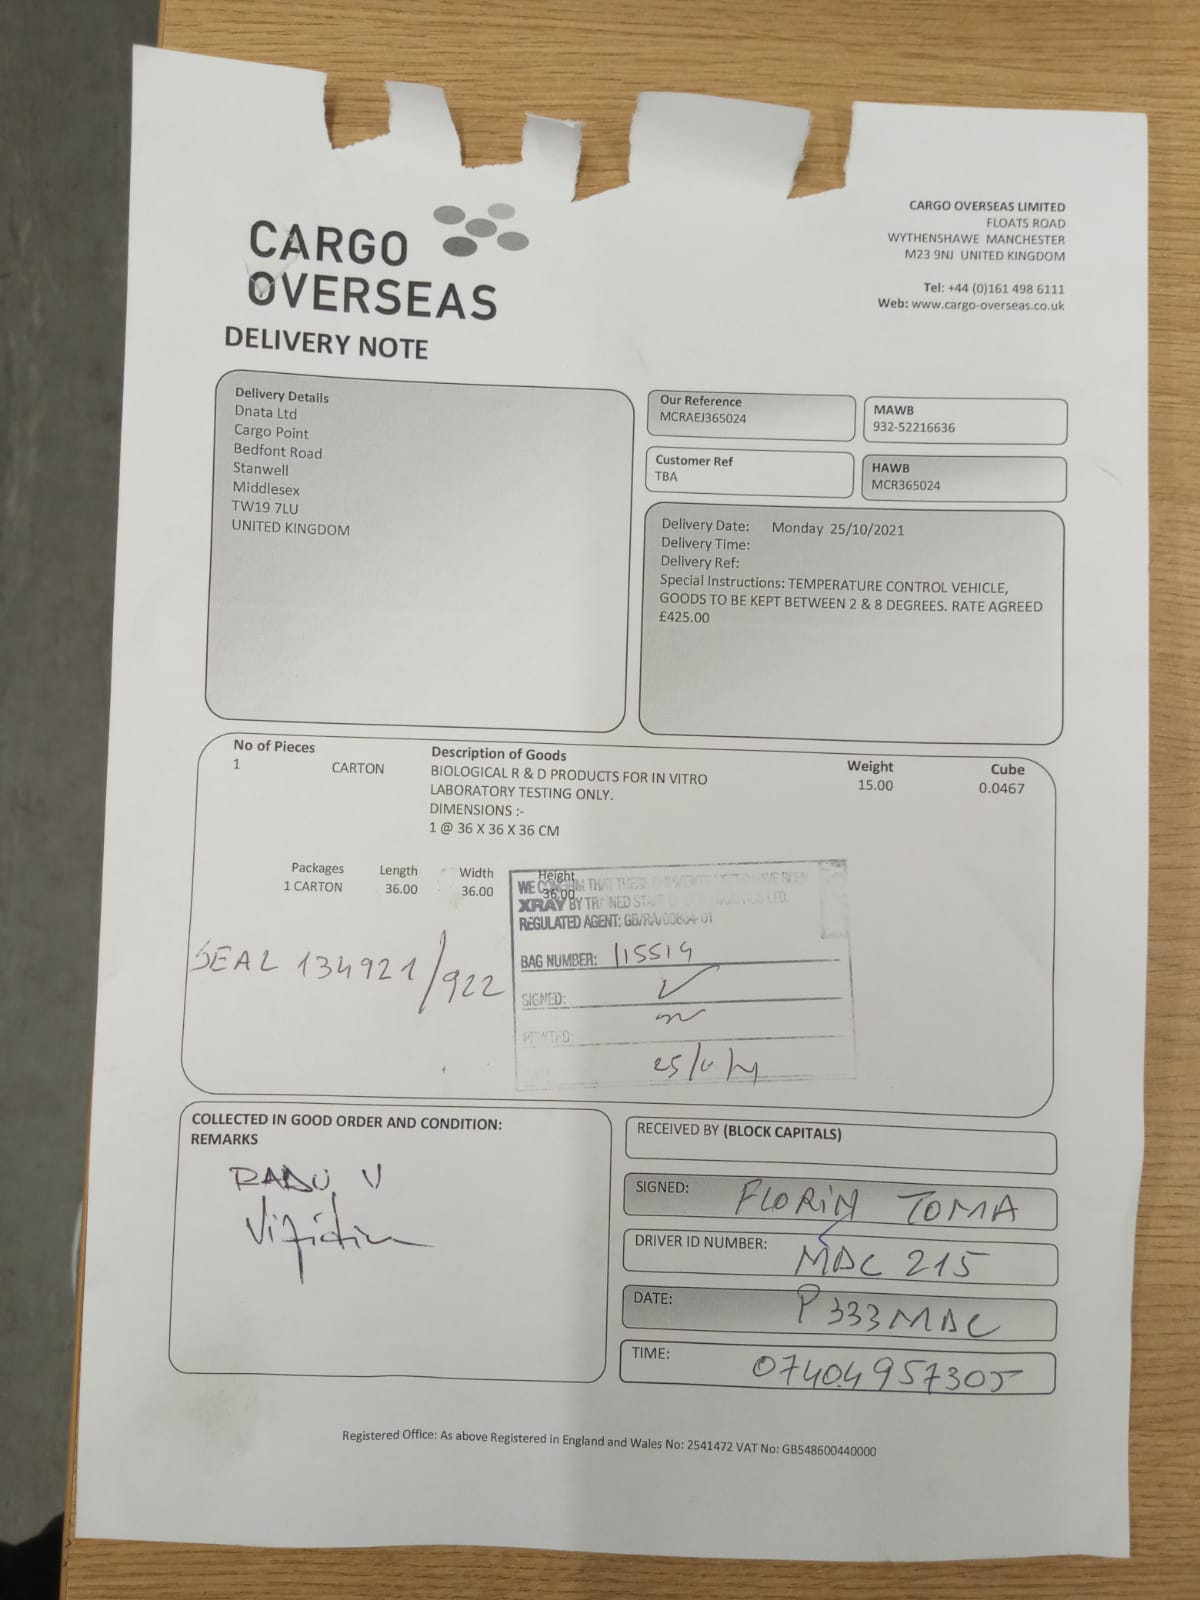 CARGO
OVERSEAS
DELIVERY NOTE
CARGO OVERSEAS LIMITED
FLOATS ROAD
WYTHENSHAWE MANCHESTER
M23 9NJ UNITED KINGDOM
Tel: +44 (0)161 498 6111
Web: www.cargo-overseas.co.uk
Delivery Details
Dnata Ltd
Cargo Point
Bedfont Road
Stanwell
Middlesex
TW19 7LU
UNITED KINGDOM
Our Reference
MCRAEJ365024
MAWB
932-52216636
Customer Ref
TBA
HAWB
MCR365024
Delivery Date: Monday 25/10/2021
Delivery Time:
Delivery Ref:
Special Instructions: TEMPERATURE CONTROL VEHICLE,
GOODS TO BE KEPT BETWEEN 2 & 8 DEGREES. RATE AGREED
£425.00
No of Pieces Description of Goods Weight Cube
1 CARTON BIOLOGICAL R & D PRODUCTS FOR IN VITRO 15.00 0.0467
LABORATORY TESTING ONLY.
DIMENSIONS :-
1 @ 36 X 36 X 36 CM
Packages Length Width Height
1 CARTON 36.00 36.00 36.00
WE CONFIRM THAT THESE HAVE BEEN
XRAY BY TRAINED STAFF LTD.
REGULATED AGENT: GB/RA/00864-01
BAG NUMBER: 115519
SIGNED:
PRINTED:
SEAL 134921/922
COLLECTED IN GOOD ORDER AND CONDITION:
REMARKS
RADU V
RECEIVED BY (BLOCK CAPITALS)
SIGNED: FLORIN TOMA
DRIVER ID NUMBER: MAC 215
DATE: P333MAC
TIME: 07404957305
Registered Office: As above Registered in England and Wales No: 2541472 VAT No: GB548600440000